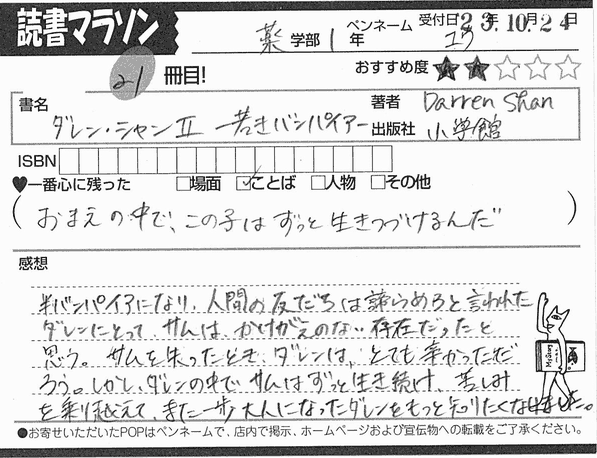 読書マラソン
薬学部 1年
ペンネーム ユウ
受付日 23年10月24日
21冊目!
おすすめ度 ★★☆☆☆
書名
ダレン・シャンⅡ 若きバンパイアー
著者 Darren Shan
出版社 小学館
ISBN
♥一番心に残った □場面 ☑ことば □人物 □その他
(おまえの中で、この子はずっと生きつづけるんだ)
感想
半バンパイアになり、人間の友だちは諦らめろと言われた
ダレンにとって、サムは、かけがえのない存在だったと
思う。サムを失ったとき、ダレンは、とても辛かっただ
ろう。しかし、ダレンの中でサムはずっと生き続け、苦しみ
を乗り越えて、また一歩大人になったダレンをもっと知りたくなりました。
●お寄せいただいたPOPはペンネームで、店内で掲示、ホームページおよび宣伝物への転載をご了承ください。